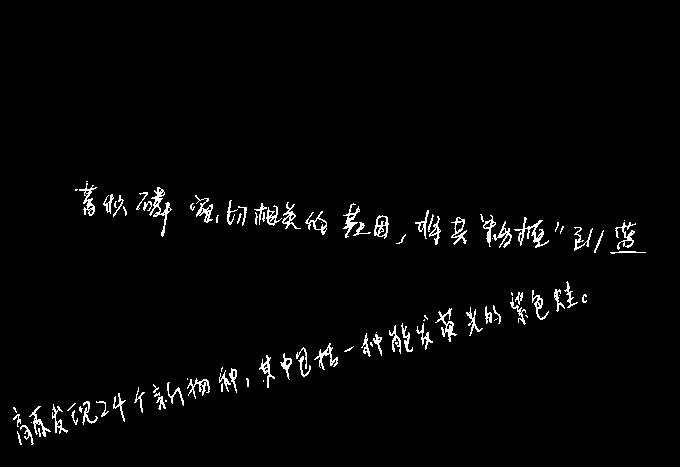 蓄积磷密切相关的基因，将其“移植”到蓝
高原发现24个新物种，其中包括一种能发荧光的紫色蛙。